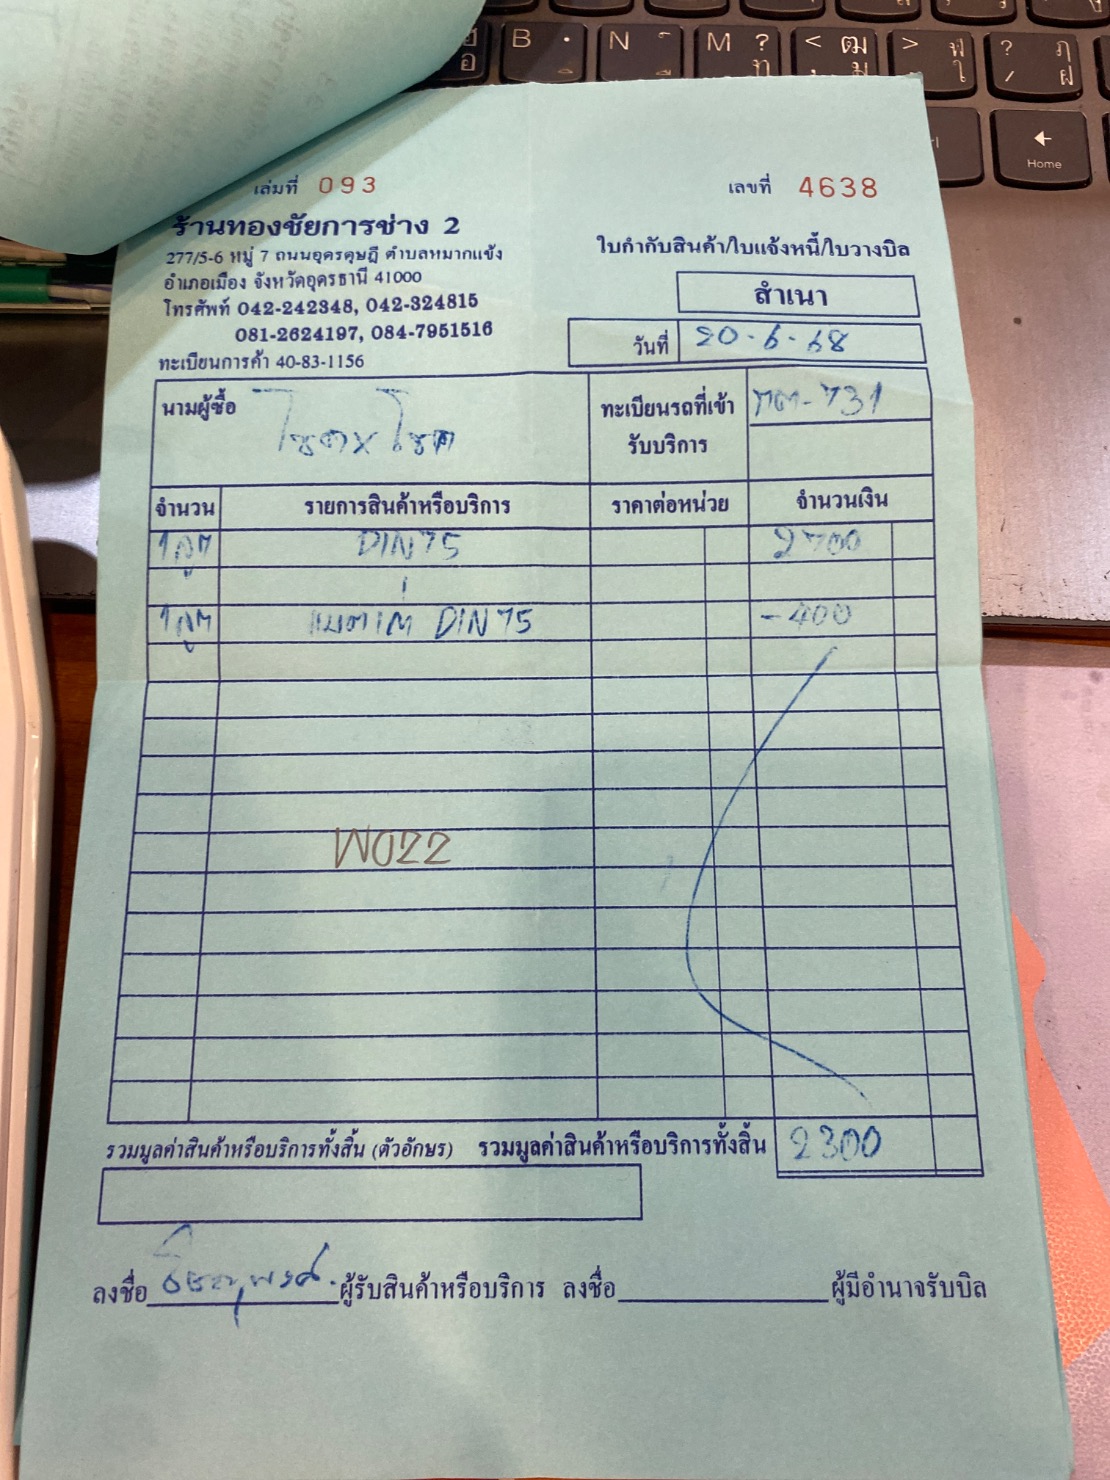 เล่มที่ 093
เลขที่ 4638
ร้านทองชัยการช่าง 2
277/5-6 หมู่ 7 ถนนอุดรดุษฎี ตำบลหมากแข้ง
อำเภอเมือง จังหวัดอุดรธานี 41000
โทรศัพท์ 042-242348, 042-324815
081-2624197, 084-7951516
ทะเบียนการค้า 40-83-1156
ใบกำกับสินค้า/ใบแจ้งหนี้/ใบวางบิล
สำเนา
วันที่ 20-6-68
นามผู้ซื้อ โชคxโชค
ทะเบียนรถที่เข้ารับบริการ -731
จำนวน รายการสินค้าหรือบริการ ราคาต่อหน่วย จำนวนเงิน
1ลูก DIN75 2700
1ลูก แบตเก่า DIN75 -400
W022
รวมมูลค่าสินค้าหรือบริการทั้งสิ้น (ตัวอักษร) รวมมูลค่าสินค้าหรือบริการทั้งสิ้น 2300
ลงชื่อ ผู้รับสินค้าหรือบริการ ลงชื่อ ผู้มีอำนาจรับบิล
B
N
M ?
ท
< ฒ
, ม
> ฬ
ใ
? ฦ
/ ฝ
Home